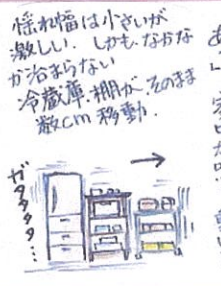 揺れ幅は小さいが
激しい。しかも、なかな
か治まらない
冷蔵庫、棚が、そのまま
数cm移動。
ガタタタタ…